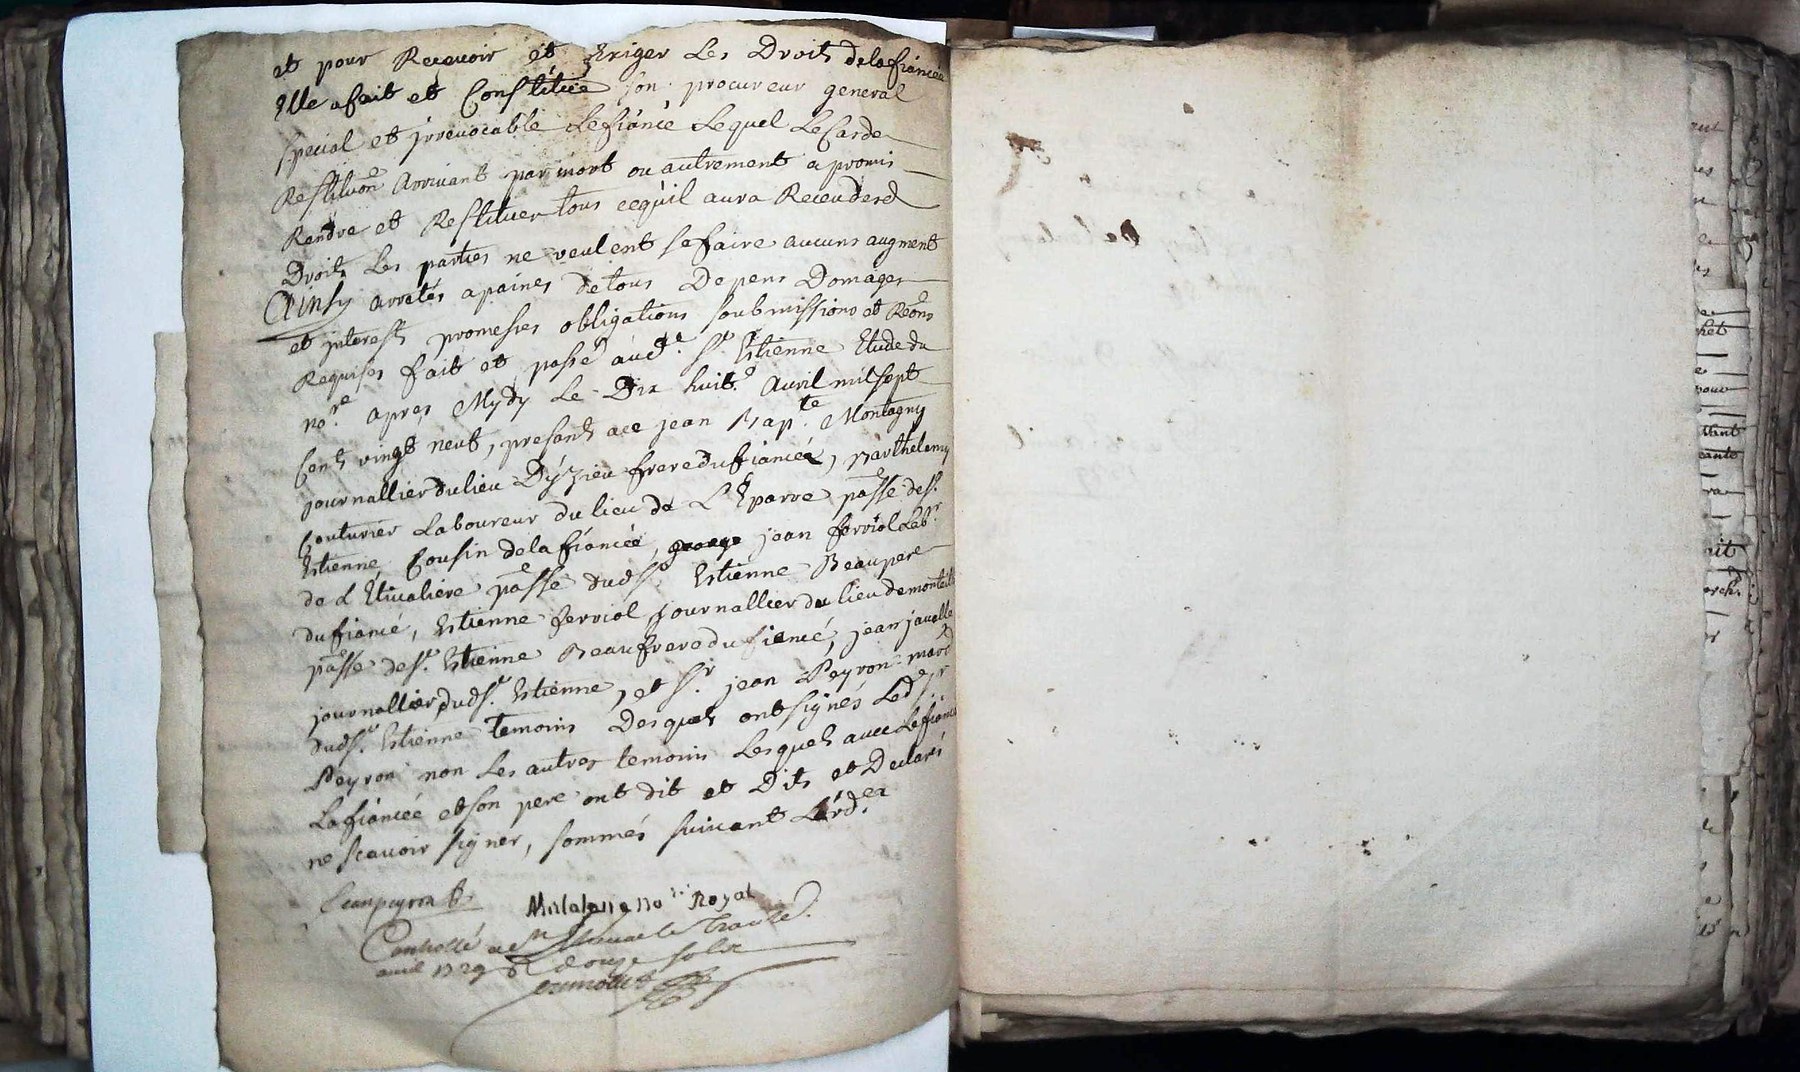 et pour Recevoir et Exiger Les Droits dela fiancée
Elle a fait et Constitüée son procureur general
special et jrrevocable Le fiancé Lequel Le Cas de
Restituon arrivant par mort ou autrement a promis
Rendre et Restituer tous cequil aura Receu desd
Droits Les parties ne veulent se faire aucuns augment
Ainsy arretés a paines de tous Depens Domages
et jnterests promesses obligations soubmissions et Reons
Requises fait et passé aud.t S.t Estienne Etude du
no.re apres Mydy Le Dix huit.e Avril mil sept
Cents vingt neuf, presants ace jean Bap.te Montagny
journallier du lieu D'yzieu frere du fiancée, Barthelemy
Couturier Laboureur du lieu de L'Eparre passe de S.t
Estienne Cousin de la fiancée, jean ferriol Lab.r
de L'Etivaliere passe dud S.t Estienne Beaupere
du fiancé, Estienne ferriol journallier du lieu de monteil
passe de S.t Estienne Beaufrere du fiencé, jean javelle
journallier dud S.t Estienne, et S.r jean Peyron mard
dud S.t Estienne temoins Desquels ont signés Led. S.r
Peyron non Les autres temoins Lesquels avec Le fiancé
La fiancée et son pere ont dit et Dits et Declaré
ne scavoir signer, sommés suivant L'ord.ce
Jean peyron
no.re Royal
Controllé a
avril 1729 douze sols